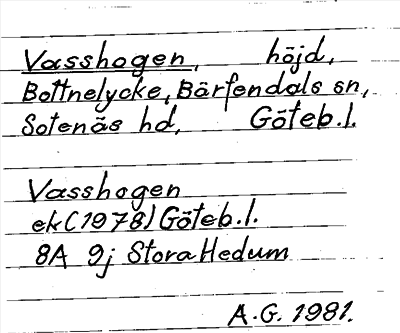 Vasshogen, höjd,
Bottnelycke, Bärfendals sn,
Sotenäs hd, Göteb.l.
Vasshogen
ek (1978) Göteb.l.
8A 9j Stora Hedum
A.G. 1981.